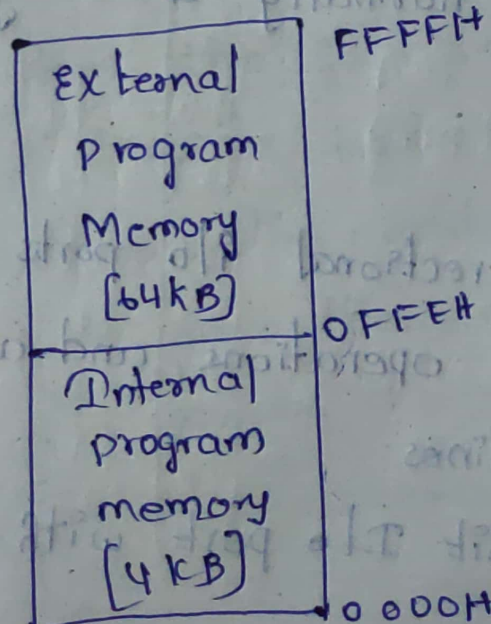 FFFFH
External
program
Memory
[64KB]
0FFEH
Internal
program
memory
[4KB]
0000H